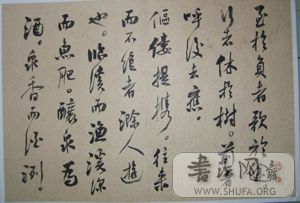 至於負者歌於途
行者休於樹。前者
呼後者應。
傴僂提攜。往來
而不絕者滁人遊
也。臨溪而漁溪深
而魚肥。釀泉為
酒。泉香而酒洌。
WWW.SHUFA.ORG